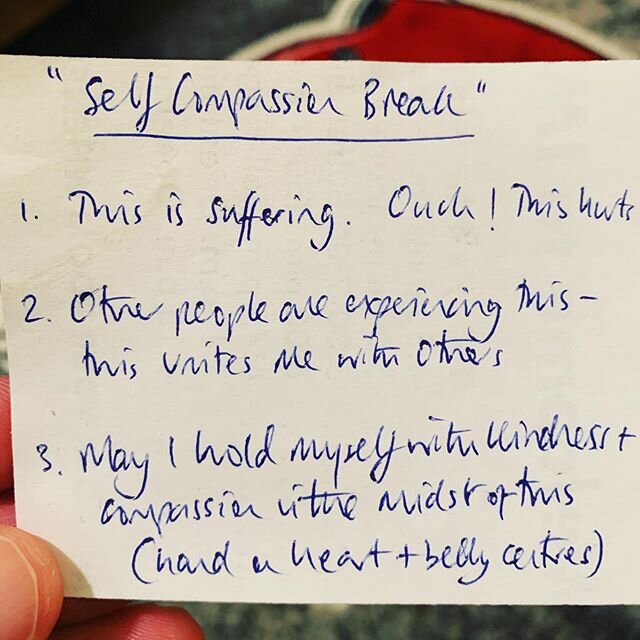 "Self Compassion Break"
1. This is suffering. Ouch! This hurts
2. Other people are experiencing this -
this unites me with others
3. May I hold myself with kindness +
compassion in the midst of this
(hand on heart + belly centres)